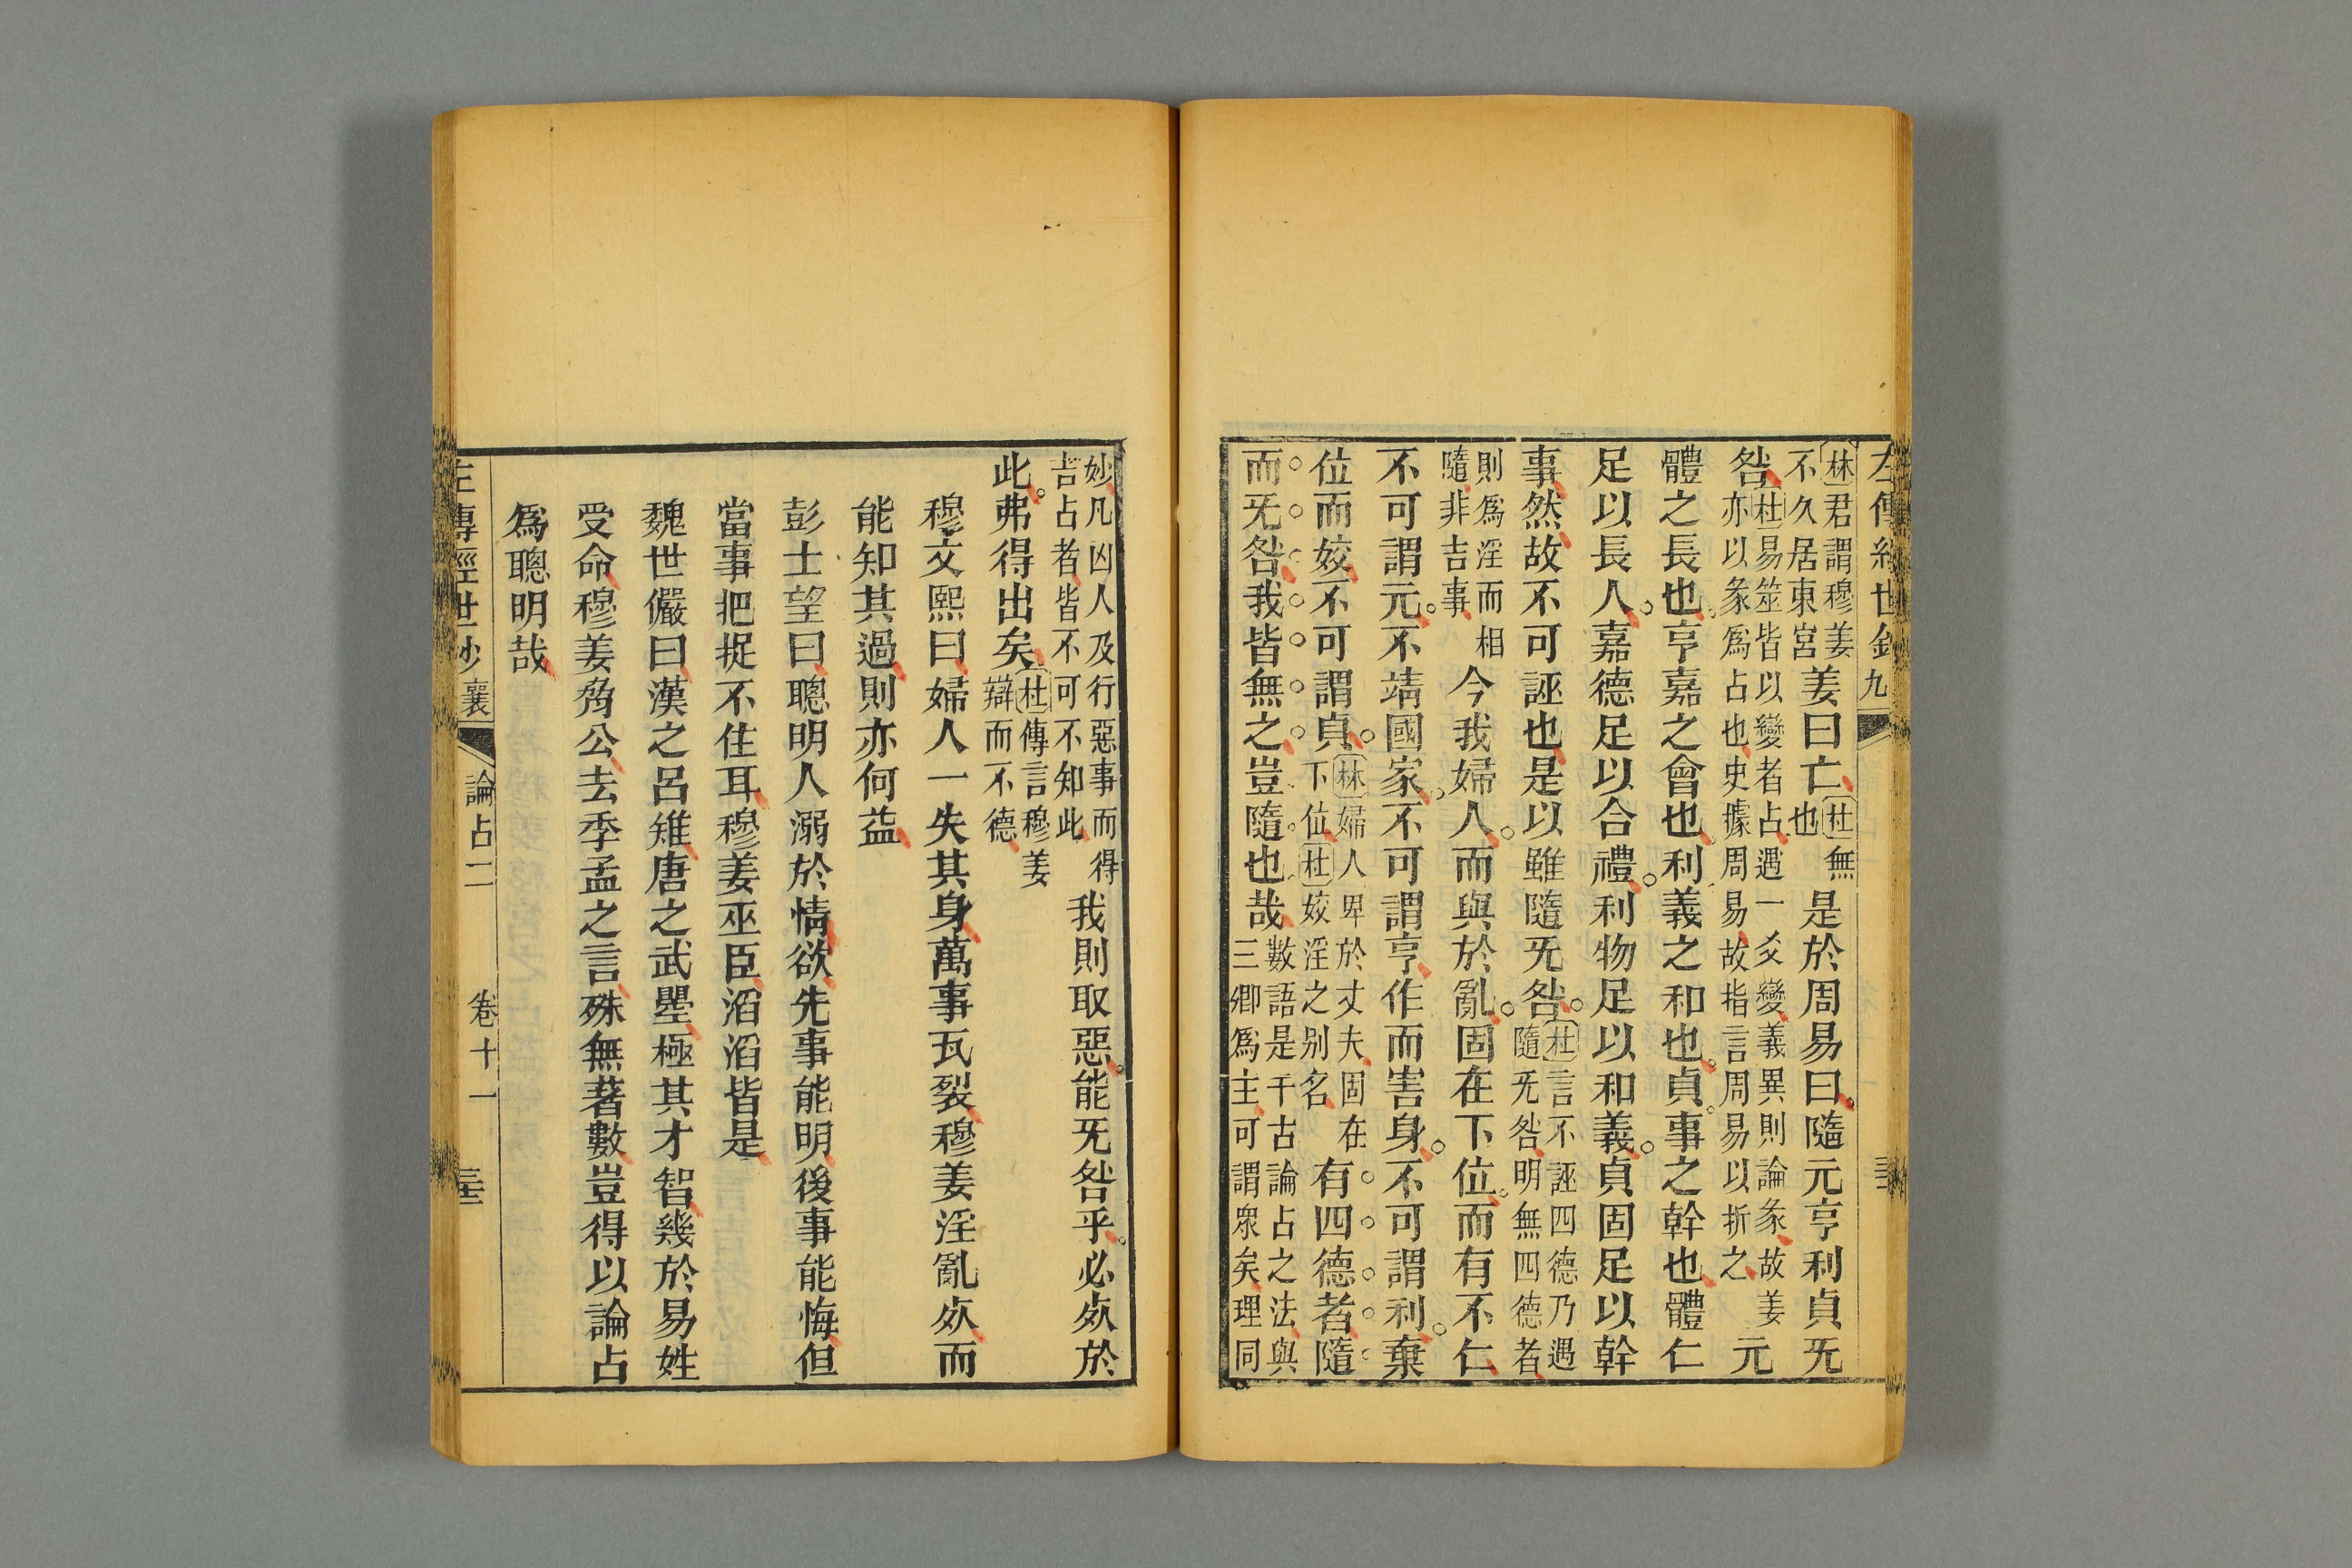 左傳經世鈔九
林君謂穆姜
不久居東宮
姜曰亡
杜無
也
是於周易曰隨元亨利貞无
咎
杜易筮皆以變者占遇一爻變義異則論彖故姜
亦以彖爲占也史據周易故指言周易以折之
元
體之長也亨嘉之會也利義之和也貞事之幹也體仁
足以長人嘉德足以合禮利物足以和義貞固足以幹
事然故不可誣也是以雖隨无咎
杜言不誣四德乃遇
隨无咎明無四德者
則爲淫而相
隨非吉事
今我婦人而與於亂固在下位而有不仁
不可謂元不靖國家不可謂亨作而害身不可謂利棄
位而姣不可謂貞
林婦人卑於丈夫固在
下位杜姣淫之别名
有四德者隨
而无咎我皆無之豈隨也哉
數語是千古論占之法與
三卿爲主可謂衆矣理同
妙凡凶人及行惡事而得
吉占者皆不可不知此
我則取惡能无咎乎必死於
此弗得出矣
杜傳言穆姜
辯而不德
穆文熙曰婦人一失其身萬事瓦裂穆姜淫亂死而
能知其過則亦何益
彭士望曰聰明人溺於情欲先事能明後事能悔但
當事把捉不住耳穆姜巫臣滔滔皆是
魏世儼曰漢之呂雉唐之武曌極其才智幾於易姓
受命穆姜脅公去季孟之言殊無著數豈得以論占
爲聰明哉
左傳經世鈔 襄 論占二 卷十一